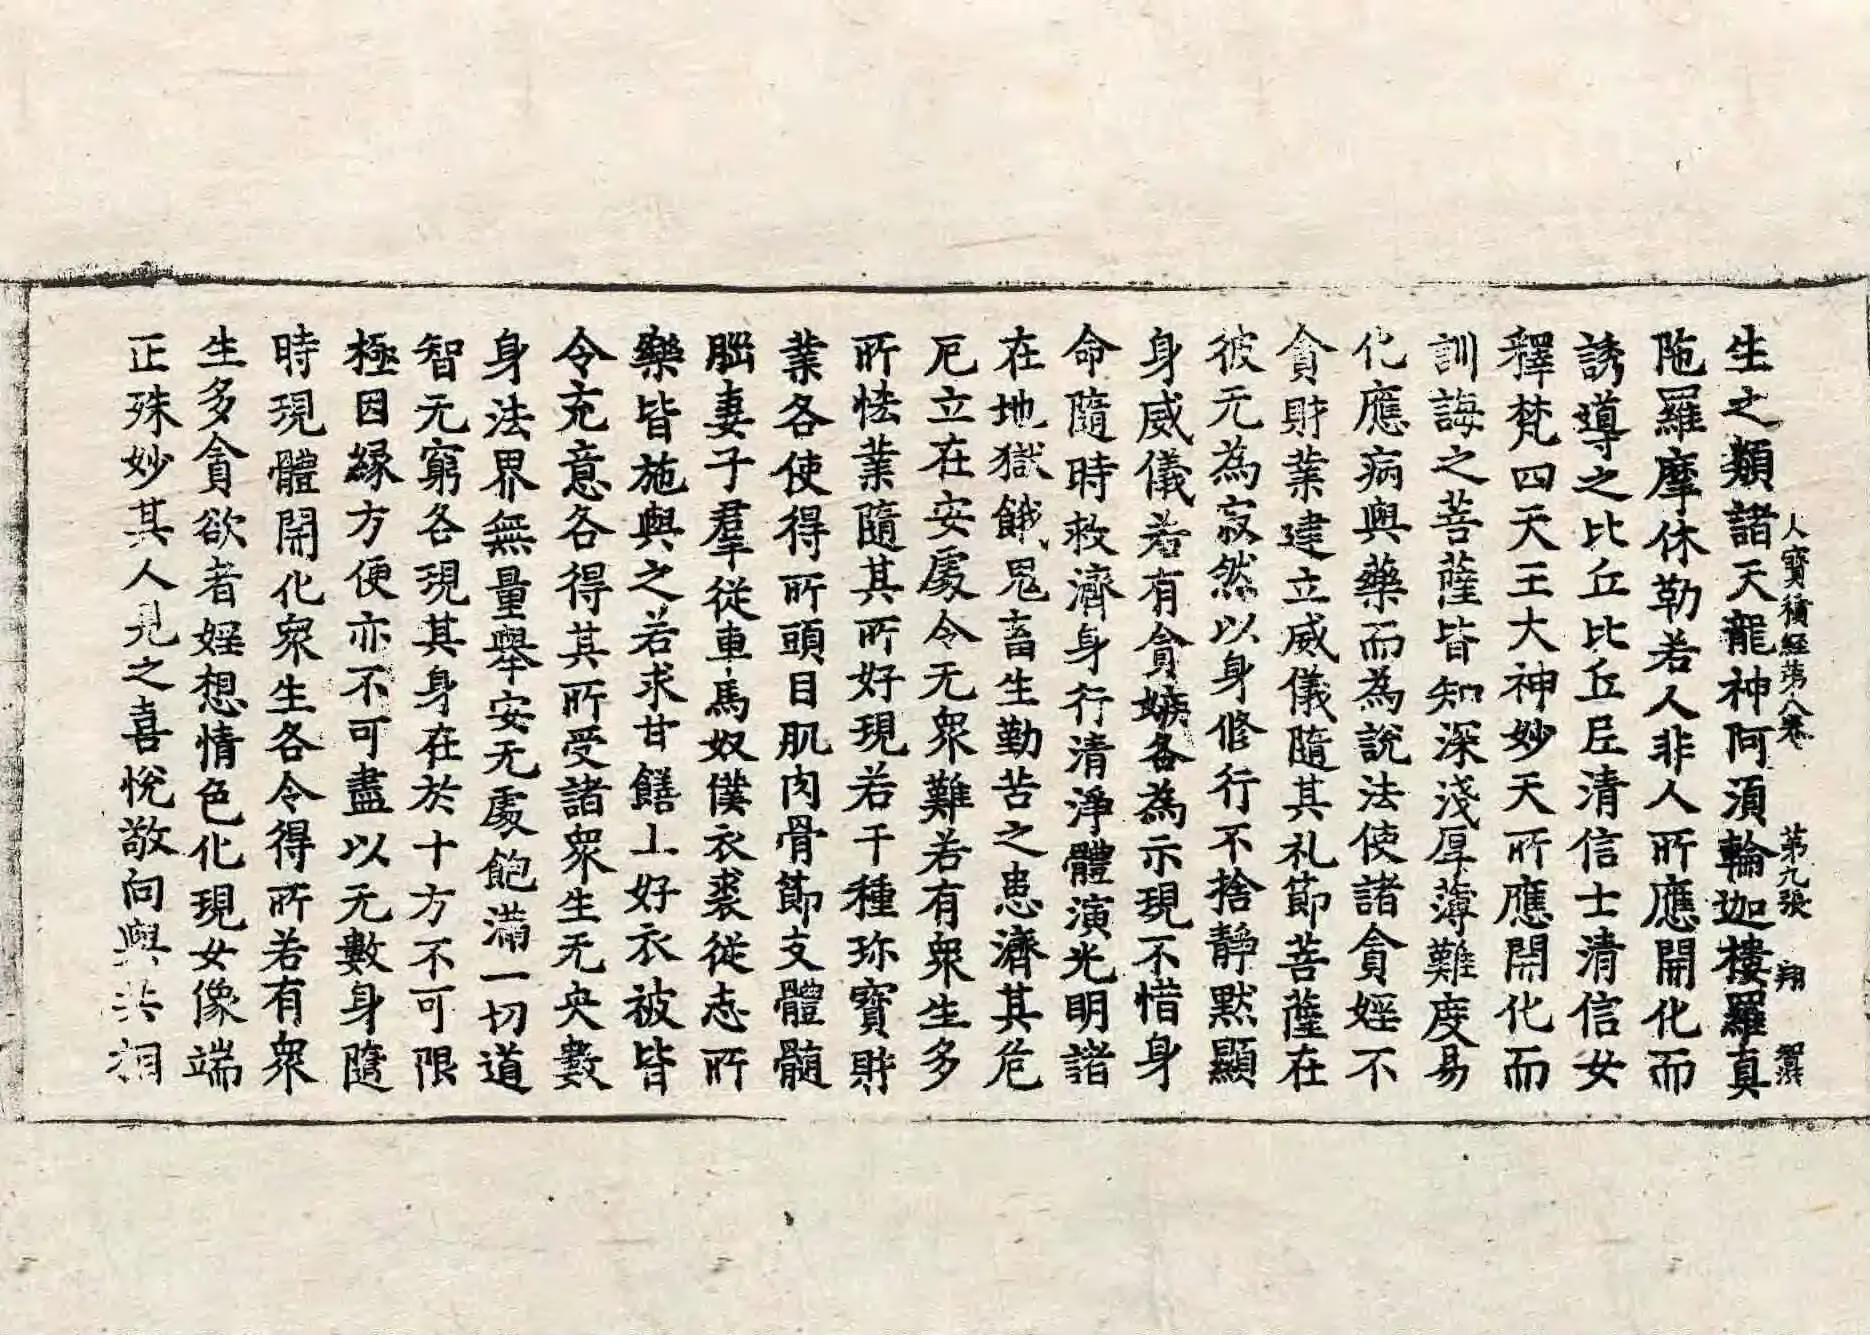 大寶積經第八卷 第九張 翔
生之類諸天龍神阿須輪迦樓羅真
陁羅摩休勒若人非人所應開化而
誘導之比丘比丘尼清信士清信女
釋梵四天王大神妙天所應開化而
訓誨之菩薩皆知深淺厚薄難度易
化應病與藥而為說法使諸貪婬不
貪財業建立威儀隨其礼節菩薩在
彼无為寂然以身修行不捨靜默顯
身威儀若有貪嫉各為示現不惜身
命隨時救濟身行清淨體演光明諸
在地獄餓鬼畜生勤苦之患濟其危
厄立在安處令无衆難若有衆生多
所恡業隨其所好現若干種珎寶財
業各使得所頭目肌肉骨節支體髓
𦠆妻子羣從車馬奴僕衣裘從志所
樂皆施與之若求甘饍上好衣被皆
令充意各得其所受諸衆生无央數
身法界無量舉安无處飽滿一切道
智无窮各現其身在於十方不可限
極因緣方便亦不可盡以无數身隨
時現體開化衆生各令得所若有衆
生多貪欲者婬想情色化現女像端
正殊妙其人見之喜悅敬向與共相